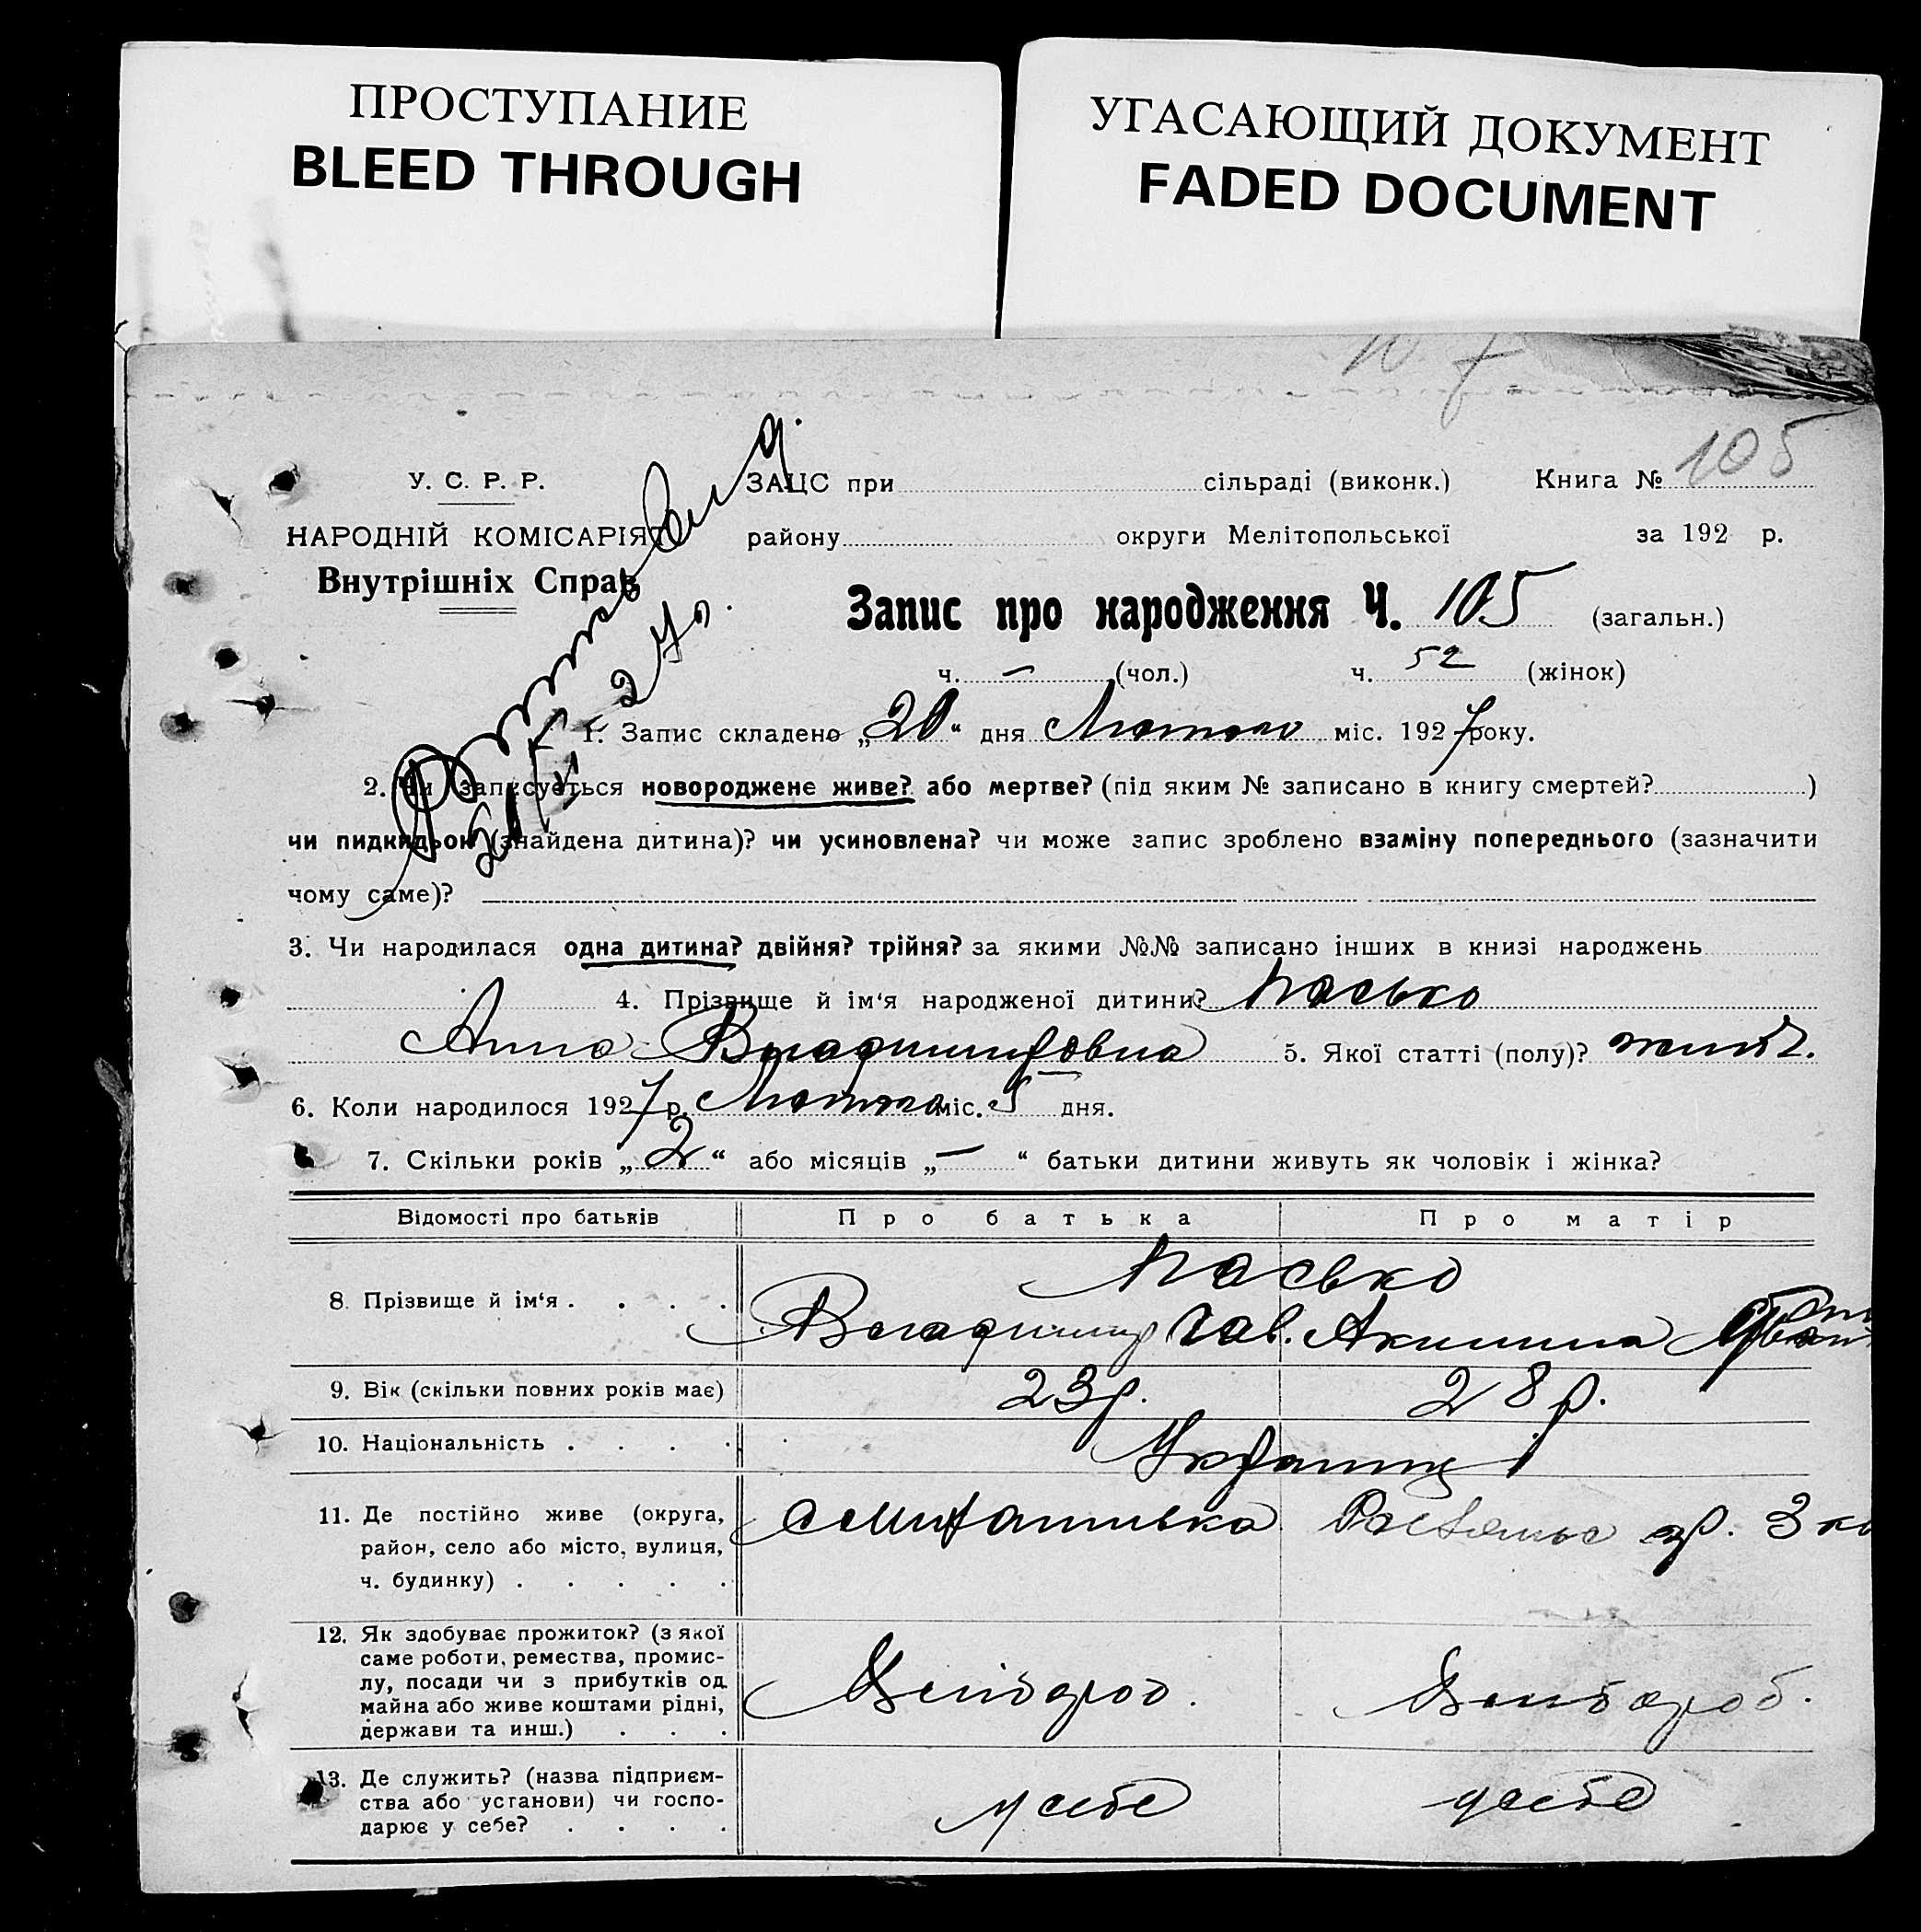 ПРОСТУПАНИЕ
BLEED THROUGH
УГАСАЮЩИЙ ДОКУМЕНТ
FADED DOCUMENT
105
У. С. Р. Р.
ЗАЦС при сільраді (виконк.) Книга №
НАРОДНІЙ КОМІСАРІЯТ
району округи Мелітопольської за 192 р.
Внутрішніх Справ
Запис про народження Ч. 105 (загальн.)
ч. – (чол.) ч. 52 (жінок)
1. Запис складено „20“ дня Лютого міс. 1927 року.
2. Чи записується новороджене живе? або мертве? (під яким № записано в книгу смертей? )
чи пидкидьок (знайдена дитина)? чи усиновлена? чи може запис зроблено взаміну попереднього (зазначити
чому саме)?
3. Чи народилася одна дитина? двійня? трійня? за якими №№ записано інших в книзі народжень
4. Прізвище й ім‘я народженої дитини? Пасько
Анна Владимировна 5. Якої статті (полу)?
6. Коли народилося 1927 р. Лютого міс. 5 дня.
7. Скільки років „2“ або місяців „–“ батьки дитини живуть як чоловік і жінка?
Відомості про батьків Про батька Про матір
Пасько
8. Прізвище й ім‘я . . . . Владимир Сав. Акилина
9. Вік (скільки повних років має) 23 р. 28 р.
10. Національність . . . . Українці
11. Де постійно живе (округа,
район, село або місто, вулиця,
ч. будинку) . . . . .
12. Як здобуває прожиток? (з якої
саме роботи, ремества, промис-
лу, посади чи з прибутків од
майна або живе коштами рідні,
держави та инш.) . . .
Хлібороб. Хлібороб.
13. Де служить? (назва підприєм-
ства або установи) чи госпо-
дарює у себе? . . . .
у себе у себе